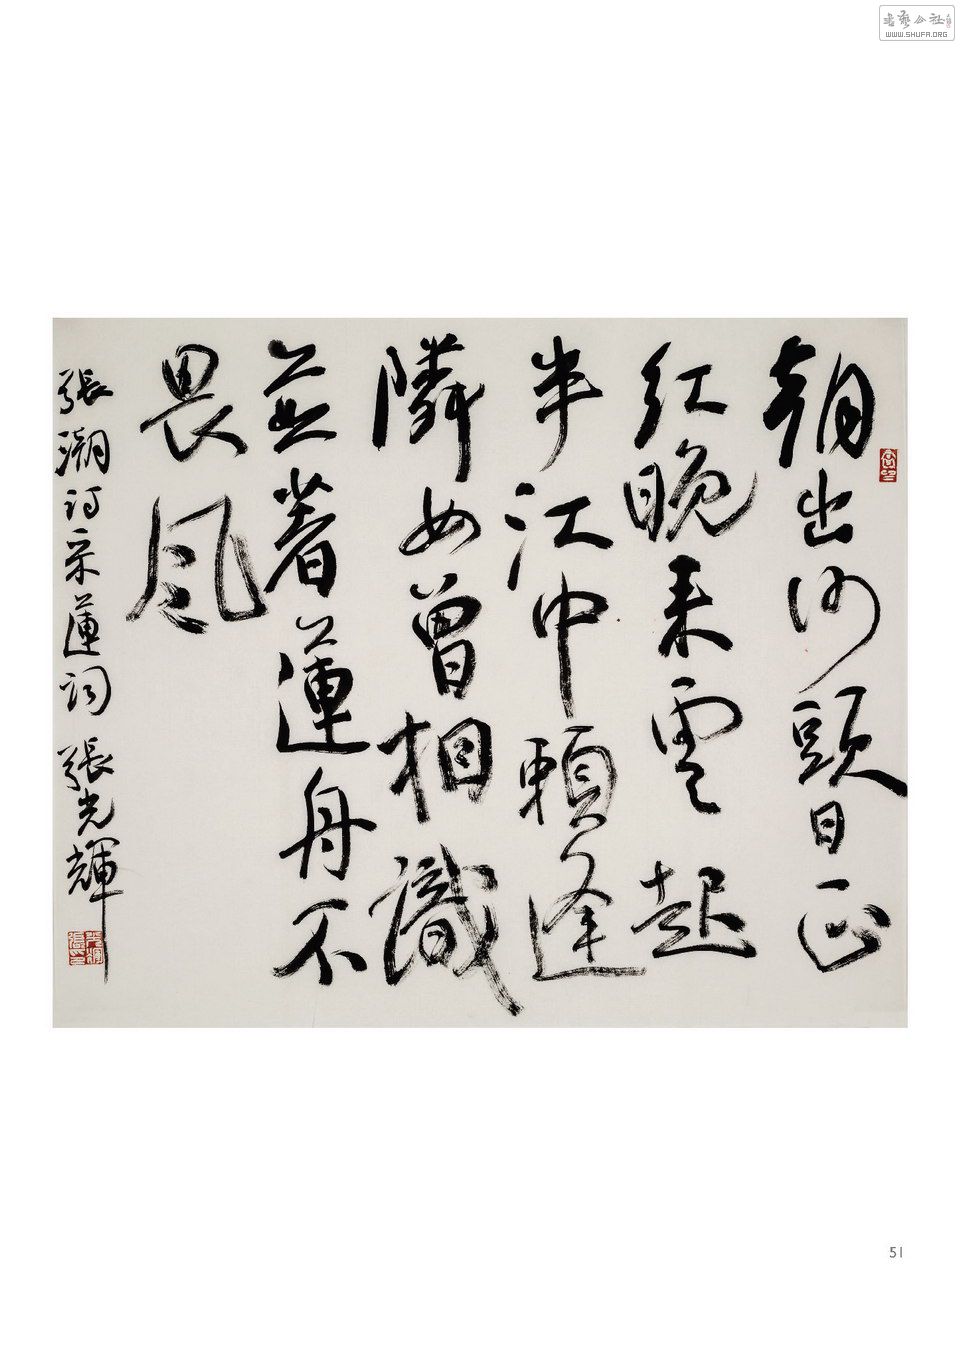 朝出沙頭日正
紅晚来雲起
半江中頼逢
隣女曾相識
並著蓮舟不
畏風
張潮詩采蓮詞 張光輝
WWW.SHUFA.ORG
51